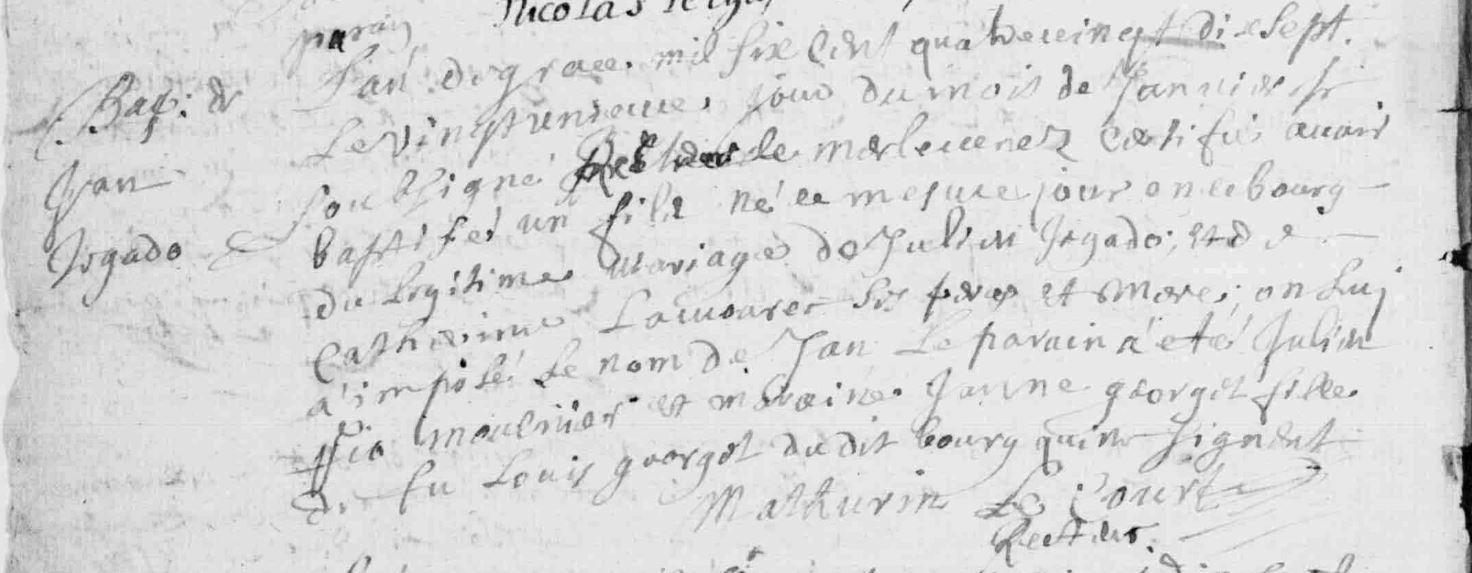 Nicolas
parain
L'an de grace mil six cent quatre veingt dixsept.
Bap: de
Le vingt unieme jour du mois de Janvier je
Jean
soubsigné Recteur de merlevenez certifie avoir
baptisé un fils né ce mesme jour en ce bourg
Jegado
du legitime mariage de Julien Jegado, et de
Catherine ses pere et mere; on luj
a imposé le nom de Jan Le parain a eté Julien
moulnier et maraine Janne georget fille
de fu Louis georget du dit bourg qui ne signent
Mathurin Le Court
Recteur.